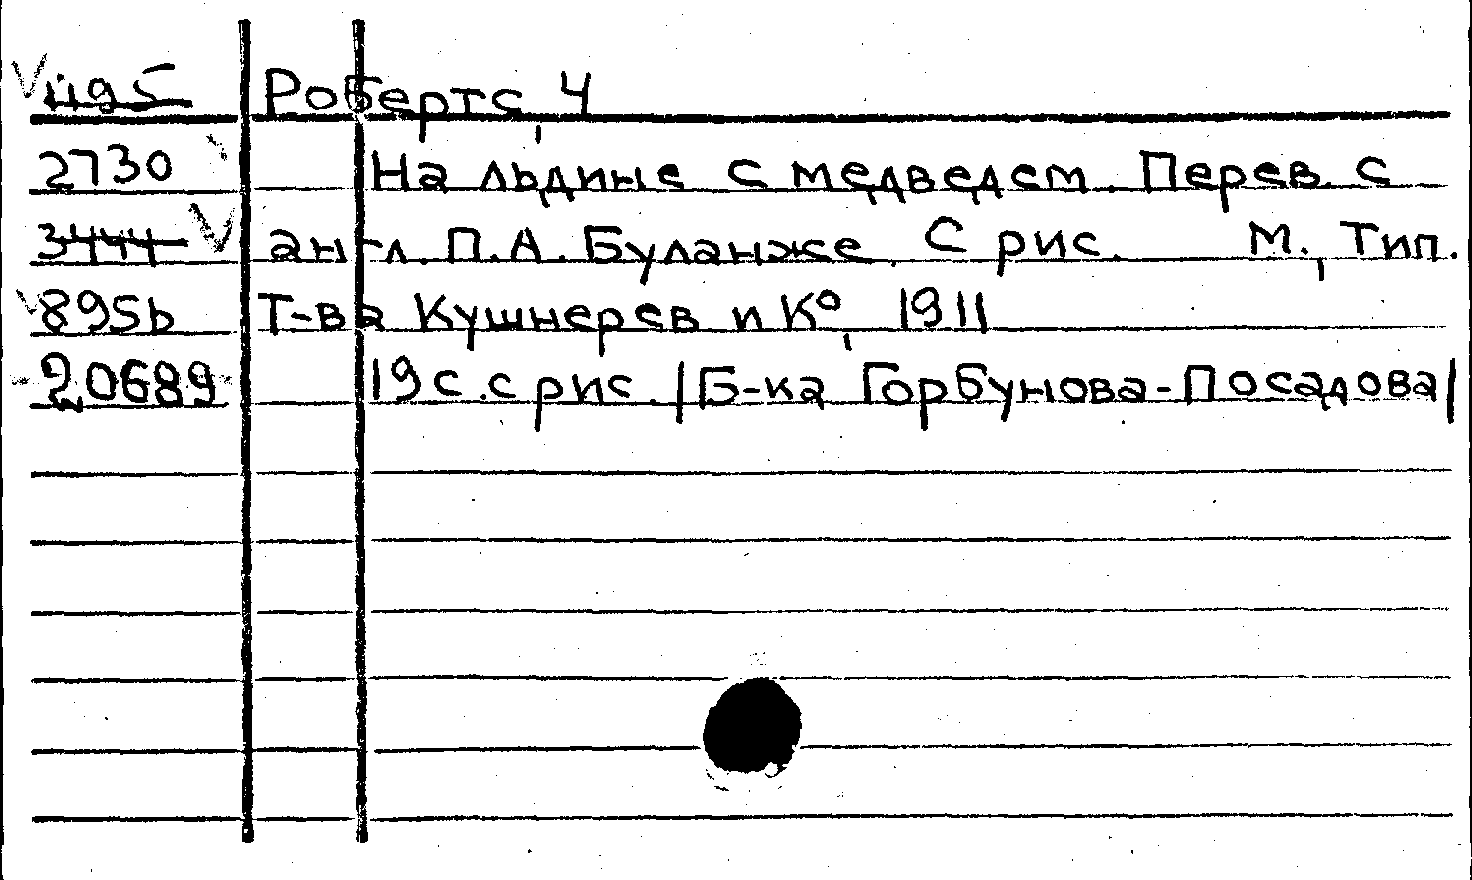 1195 Робертс, Ч
2730 На льдине с медведем. Перев. с
3444 англ. П.А. Буланже. С рис. М., Тип.
895b Т-ва Кушнерев и К°, 1911
20689 19 с. с рис. /Б-ка Горбунова-Посадова/